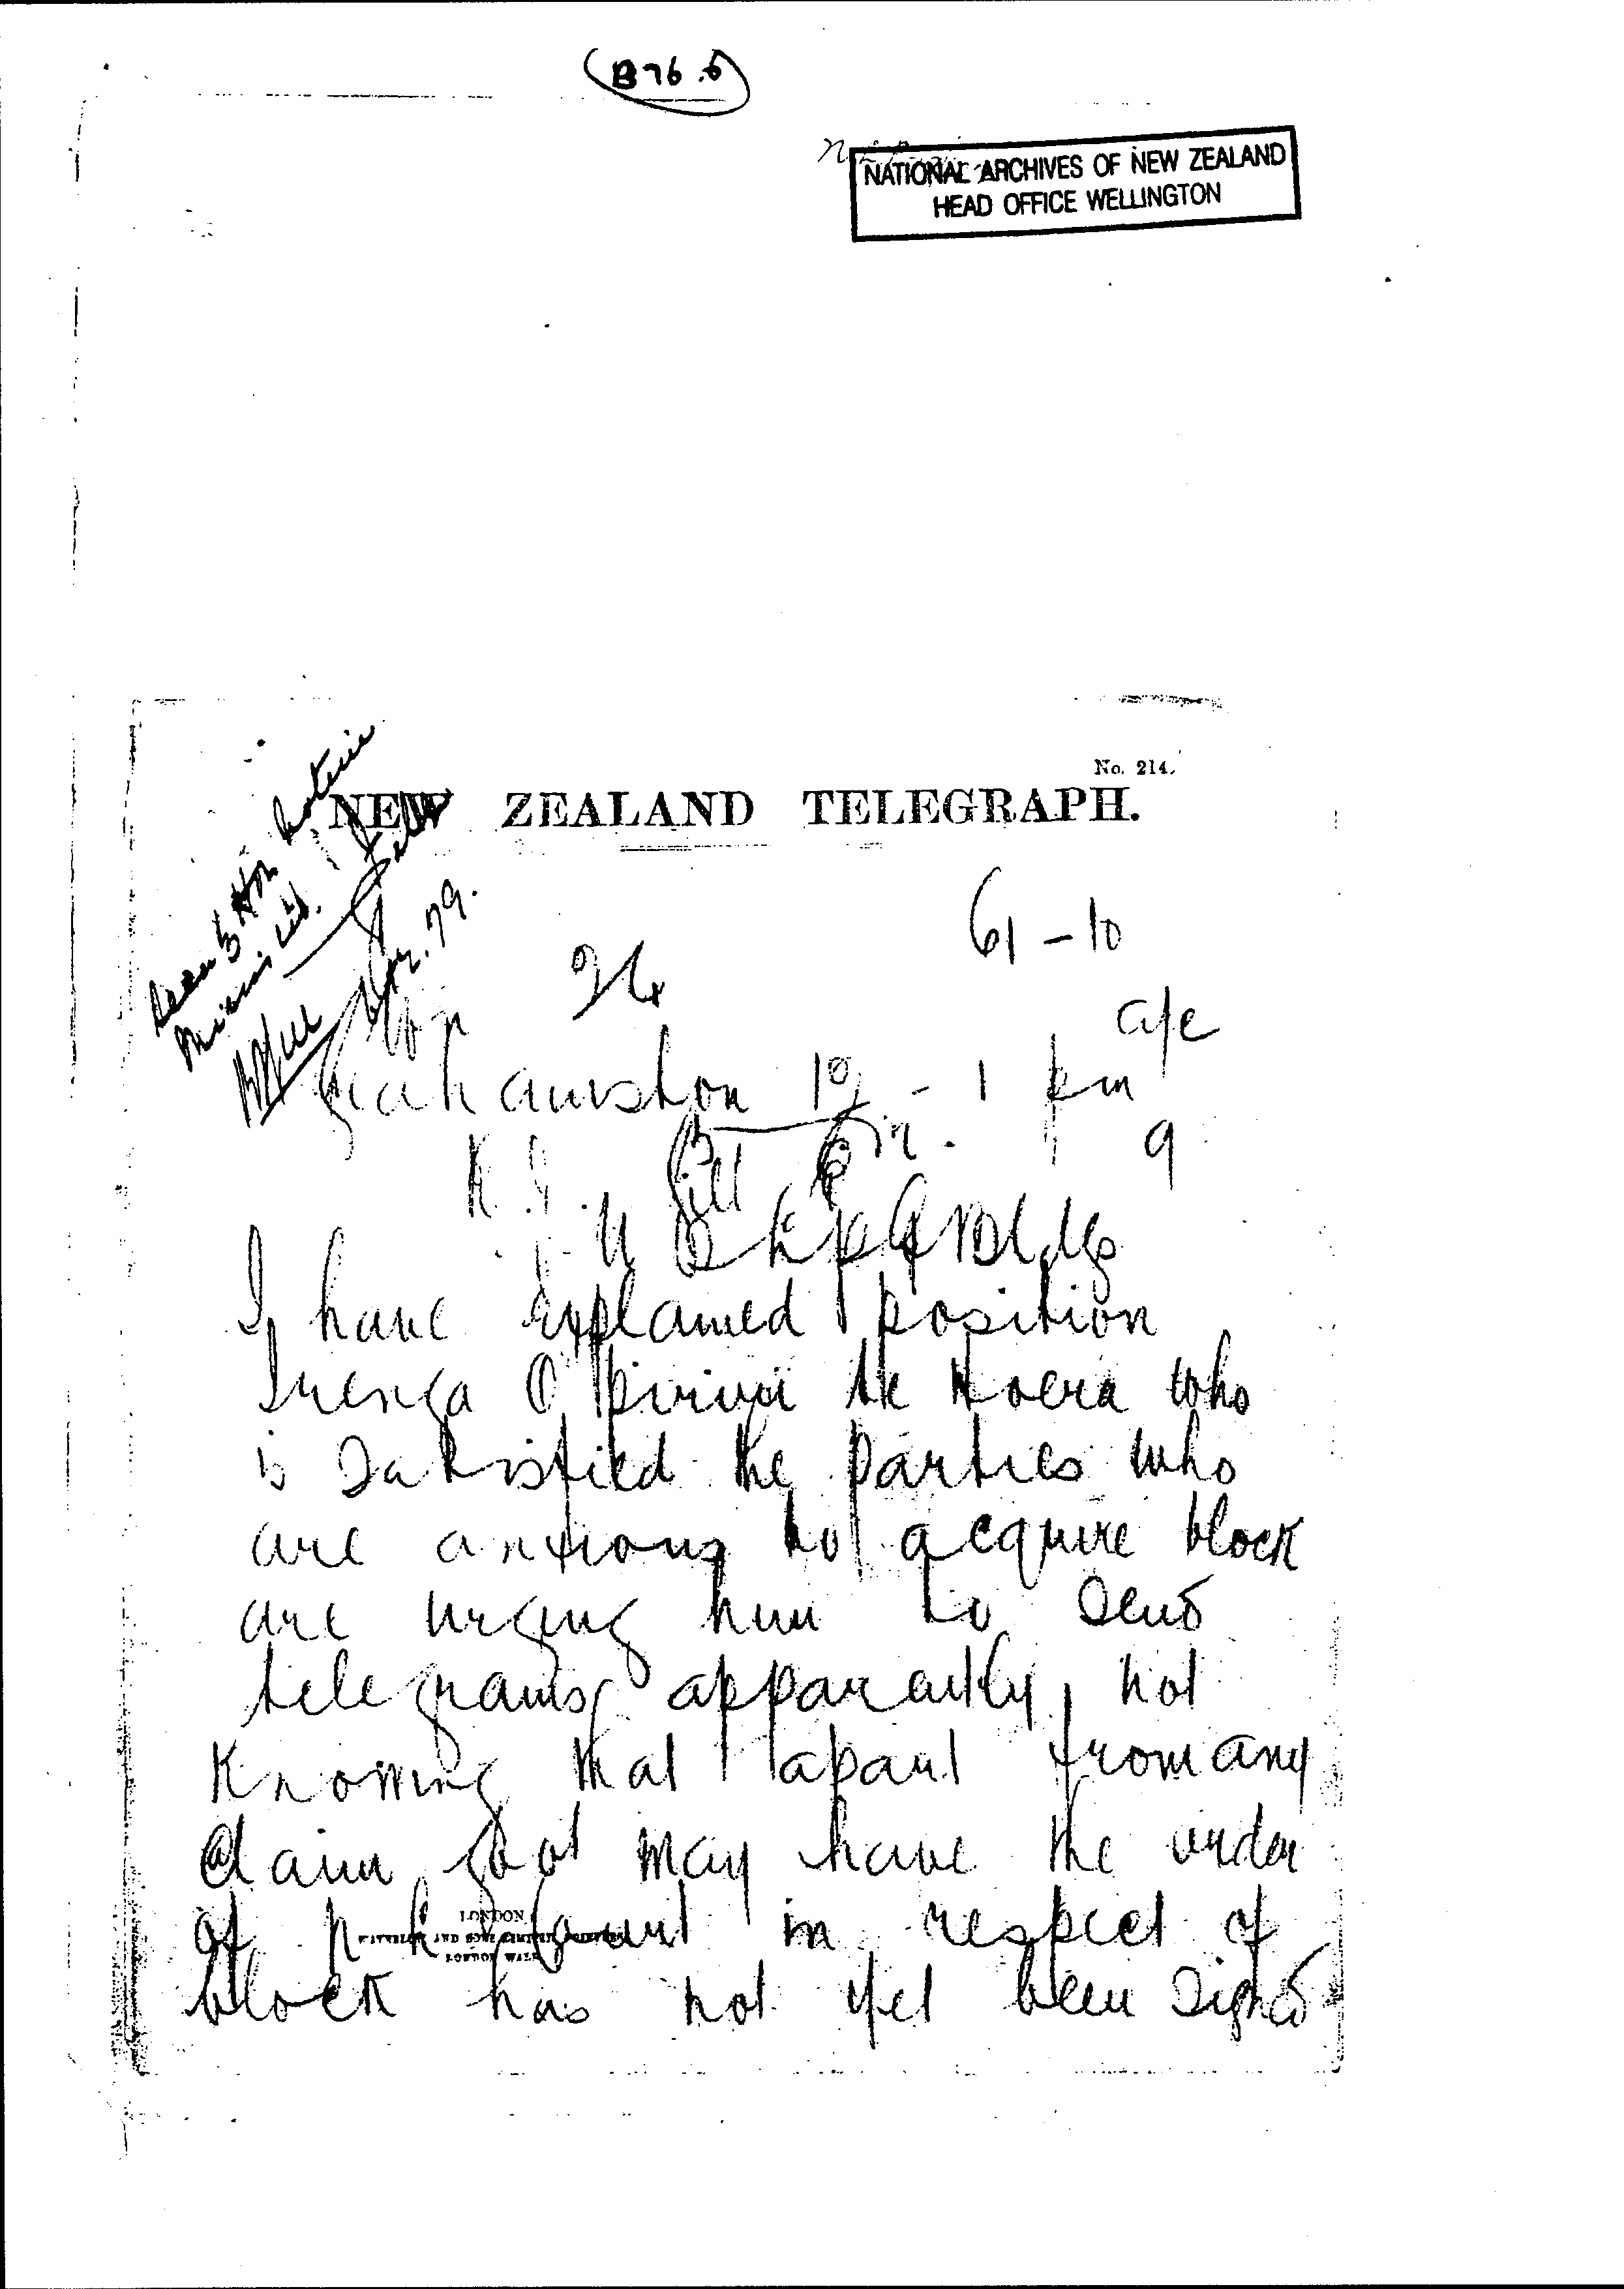 B76.6
NATIONAL ARCHIVES OF NEW ZEALAND
HEAD OFFICE WELLINGTON
No. 214.
NEW ZEALAND TELEGRAPH.
Seen by Hon Native
Minister
79.
61 - 10
Grahamston 19 - 1 pm
9
R. J. Gill
I have explained position
Irenga O Pirivi te Hoera who
is satisfied the parties who
are anxious to acquire block
are urging him to send
telegrams apparently not
knowing that apart from any
claim Govt may have the order
of n l Court in respect of
LONDON
AND SONS
LONDON WALL
block has not yet been signed